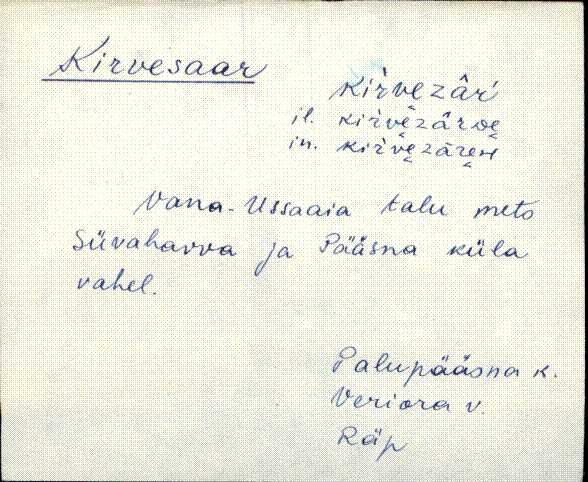 Kirvesaar
kìrvezâŕ
il. kìrvezârde
in. kìrvezāren
Vana-Ussaaia talu mets
Süvahavva ja Pääsna küla
vahel.
Palupääsna k.
Veriora v.
Räp